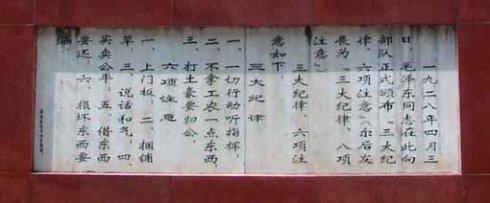 一九二八年四月三
日，毛泽东同志在此向
部队正式颁布“三大纪
律、六项注意”（尔后发
展为“三大纪律、八项
注意”）
三大纪律、六项注
意如下：
三大纪律
一、一切行动听指挥，
二、不拿工农一点东西，
三、打土豪要归公，
六项注意
一、上门板，二、捆铺
草，三、说话和气，四、
买卖公平，五、借东西
要还，六、损坏东西要